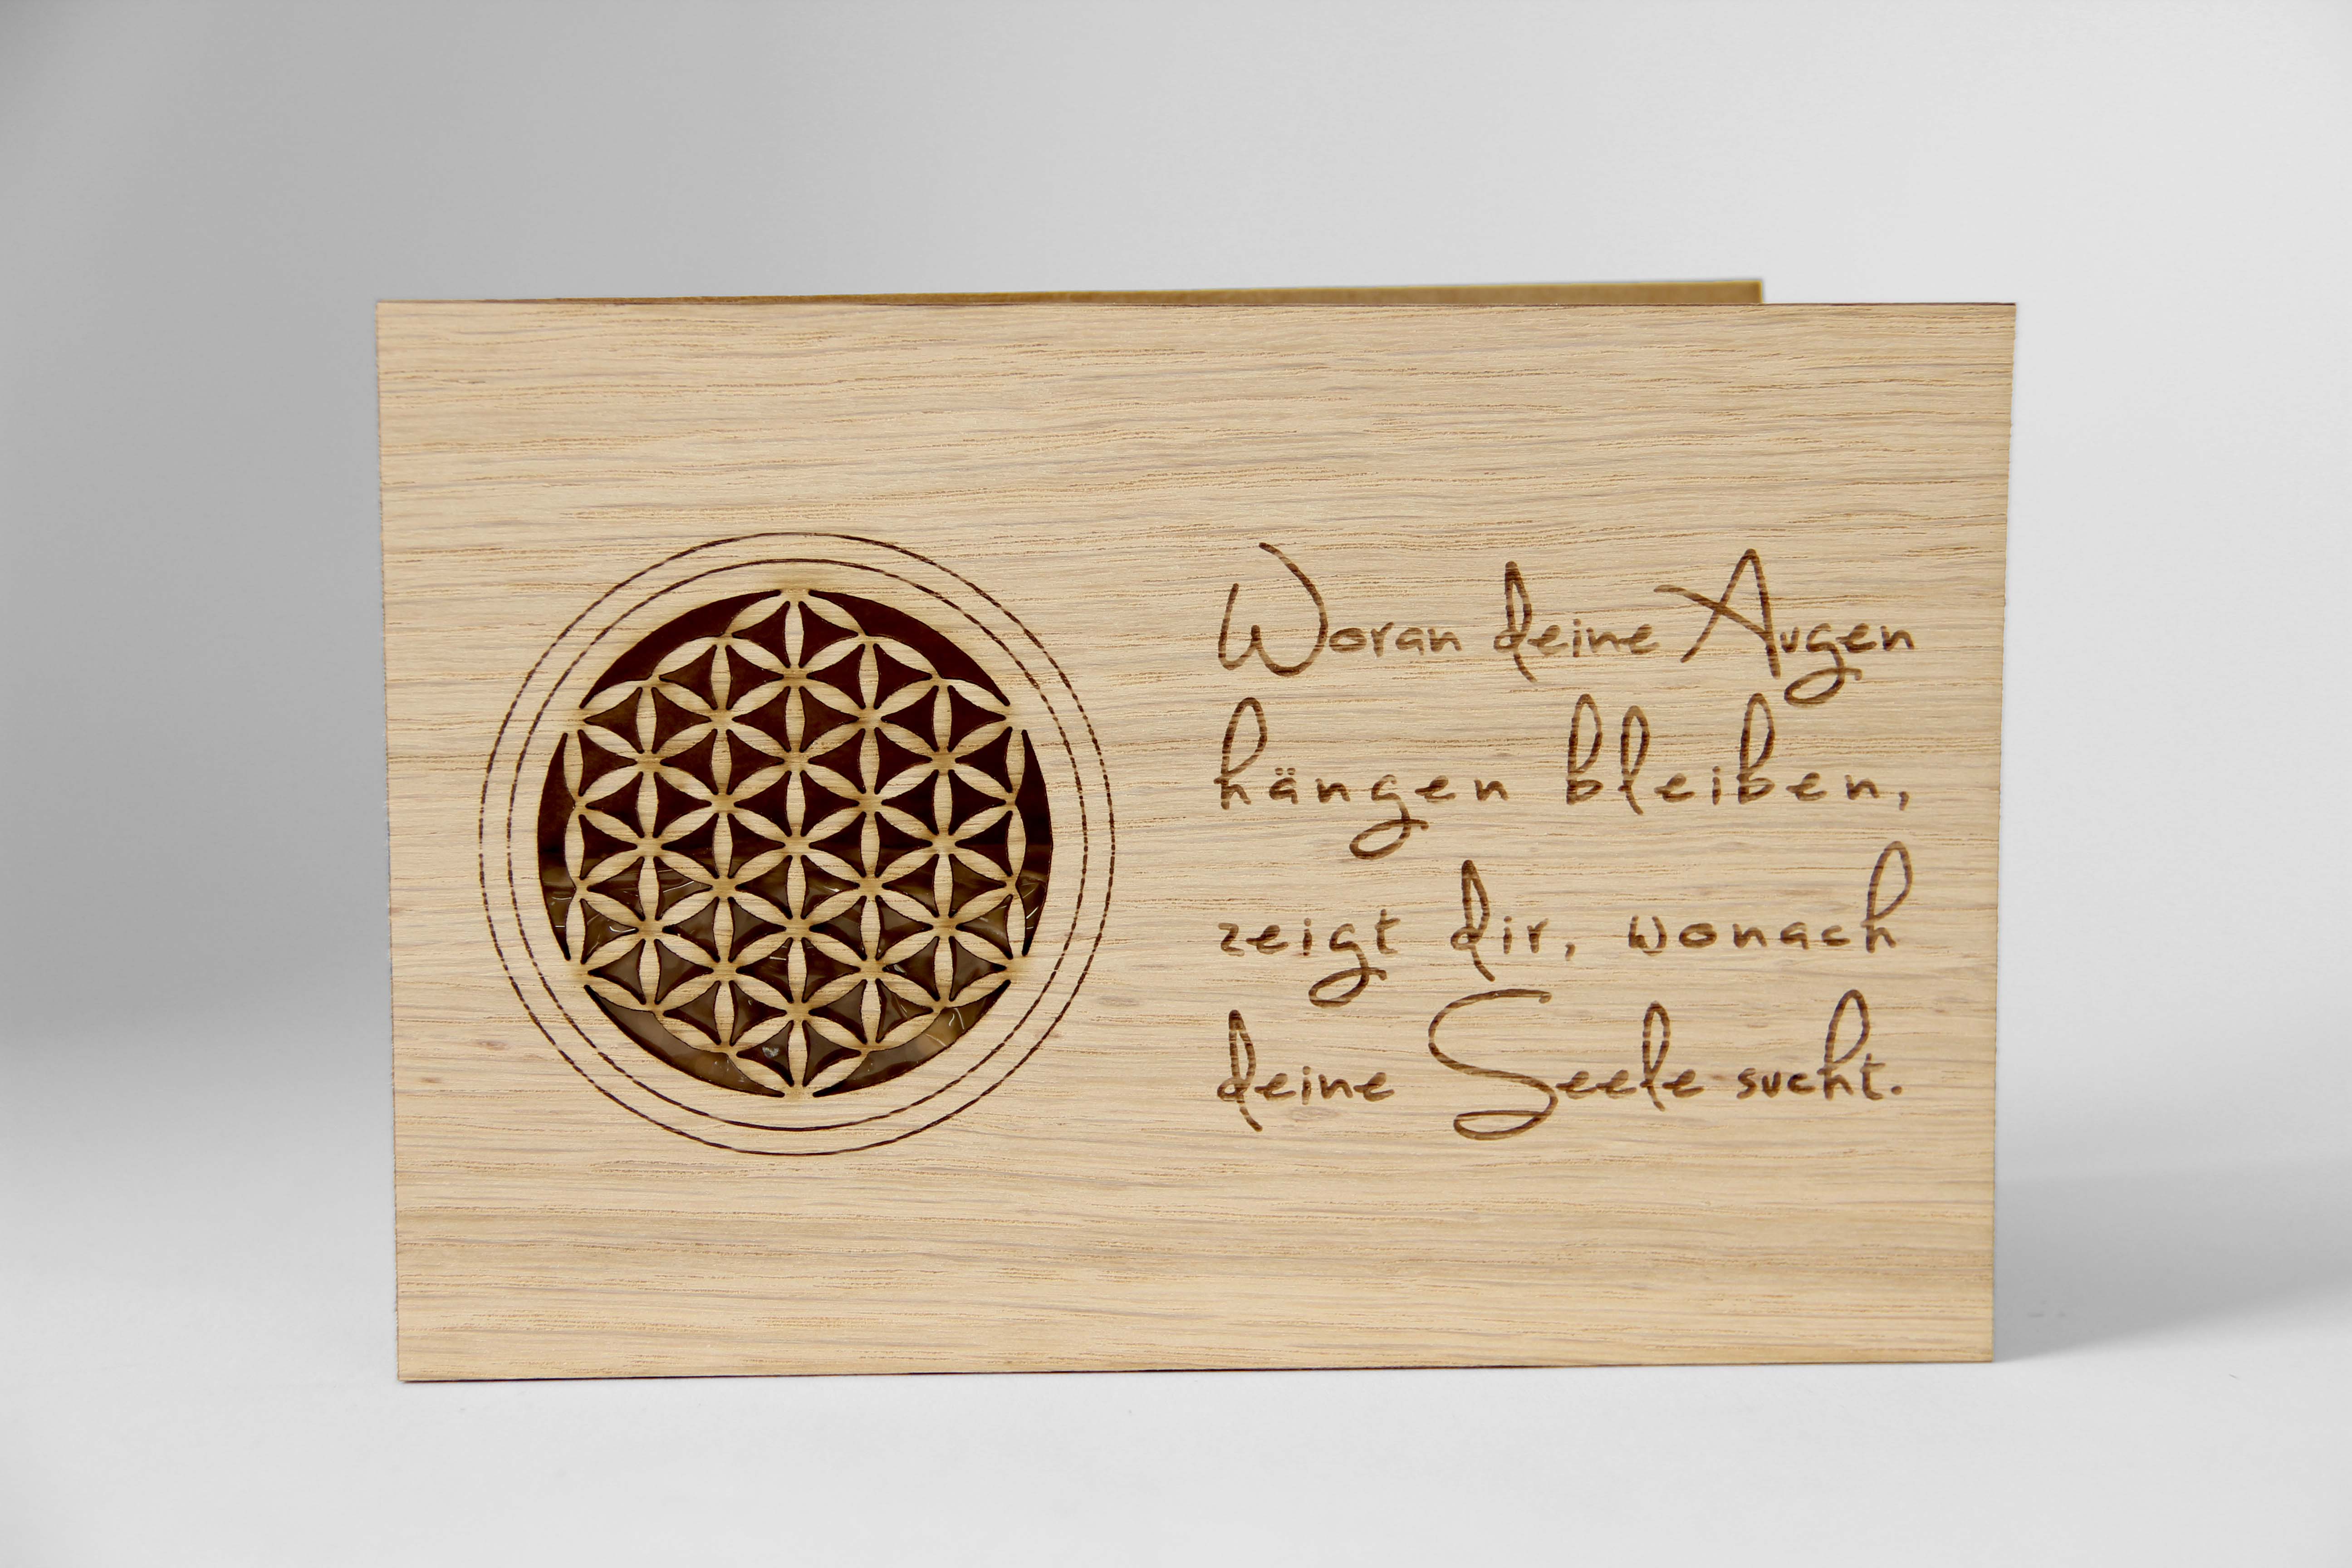 Woran deine Augen
hängen bleiben,
zeigt dir, wonach
deine Seele sucht.